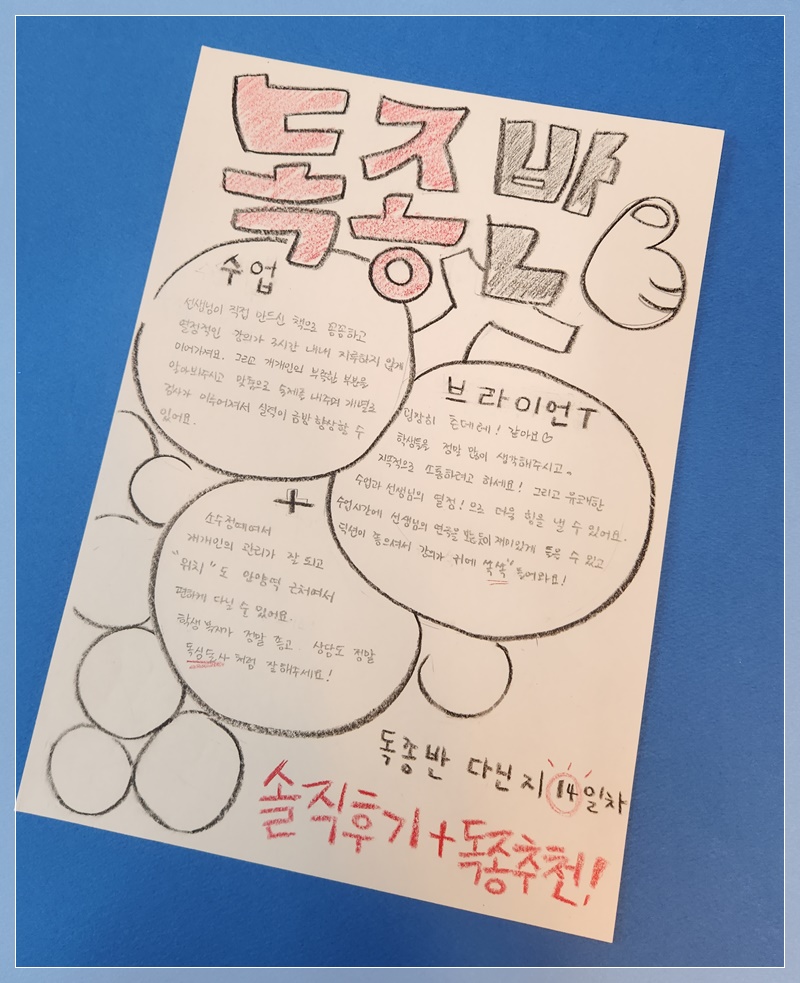 독종반
수업
선생님이 직접 만드신 책으로 꼼꼼하고
열정적인 강의가 3시간 내내 지루하지 않게
이어가셔요. 그리고 개개인의 부족한 부분을
알아봐주시고 맞춤으로 숙제를 내주며 개별로
검사가 이루어져서 실력이 금방 향상할 수
있어요.
브라이언T
굉장히 츤데레! 같아요♡
학생들을 정말 많이 생각해주시고,
지속적으로 소통하려고 하세요! 그리고 유쾌한
수업과 선생님의 열정!으로 더욱 힘을 낼 수 있어요.
수업시간에 선생님의 연극을 보듯이 재미있게 들을 수 있고
딕션이 좋으셔서 강의가 귀에 쏙쏙" 들어와요!
+
소수정예여서
개개인의 관리가 잘 되고
"위치"도 안양역 근처여서
편하게 다닐 수 있어요.
학생 복지가 정말 좋고 상담도 정말
독심술사처럼 잘해주세요!
독종반 다닌지 14일차
솔직후기+독종추천!